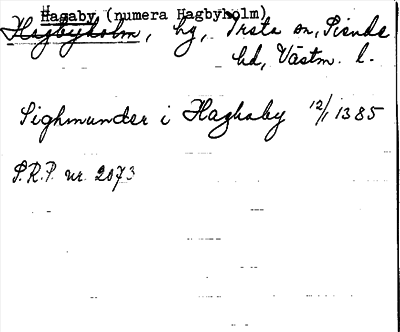 Hagaby (numera Hagbyholm)
Hagbyholm, hg, Irsta sn, Siende
hd, Västm. l.
Sighmunder i Haghaby 12/1 1385
S.R.P. nr. 2073